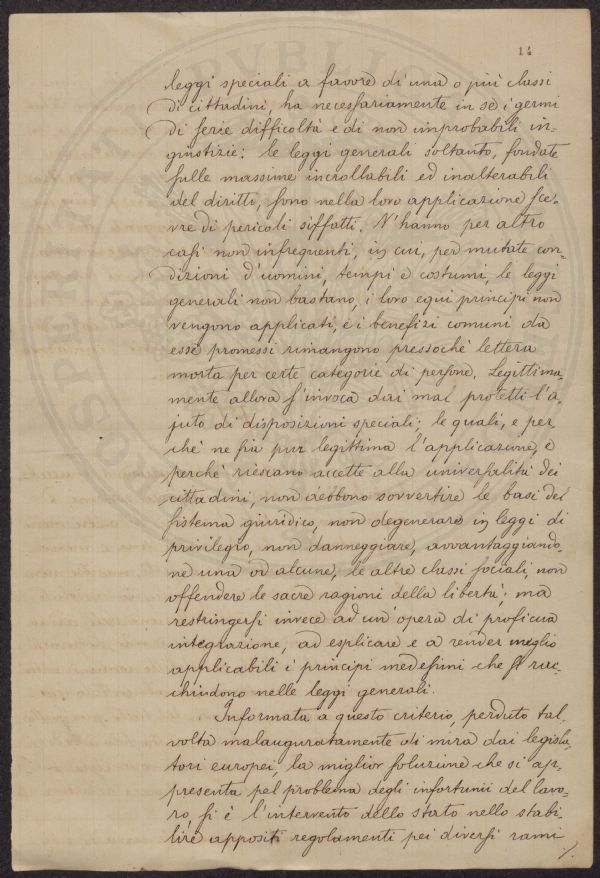 14
leggi speciali a favore di una o più classi
di cittadini, ha necessariamente in sè i germi
di serie difficoltà e di non improbabili in-
giustizie: le leggi generali soltanto, fondate
sulle massime incrollabili ed inalterabili
del diritto, sono nella loro applicazione sce-
vre di pericoli siffatti. N'hanno per altro
casi non infrequenti, in cui, per mutate con-
dizioni d'uomini, tempi e costumi, le leggi
generali non bastano, i loro equi principi non
vengono applicati, e i benefizi comuni da
esse promessi rimangono pressochè lettera
morta per certe categorie di persone. Legittima-
mente allora s'invoca dai mal protetti l'a-
juto di disposizioni speciali; le quali, e per
chè ne sia pur legittima l'applicazione, e
perchè riescano accette alla universalità dei
cittadini, non debbono sovvertire le basi del
sistema giuridico, non degenerare in leggi di
privilegio, non danneggiare, avvantaggiando-
ne una od alcune, le altre classi sociali, non
offendere le sacre ragioni della libertà; ma
restringersi invece ad un'opera di proficua
integrazione, ad esplicare e a render meglio
applicabili i principi medesimi che si rac-
chiudono nelle leggi generali.
Informata a questo criterio, perduto tal-
volta malauguratamente di mira dai legisla-
tori europei, la miglior soluzione che si ap-
presenta pel problema degli infortunii del lavo-
ro, si è l'intervento dello stato nello stabi-
lire appositi regolamenti pei diversi rami